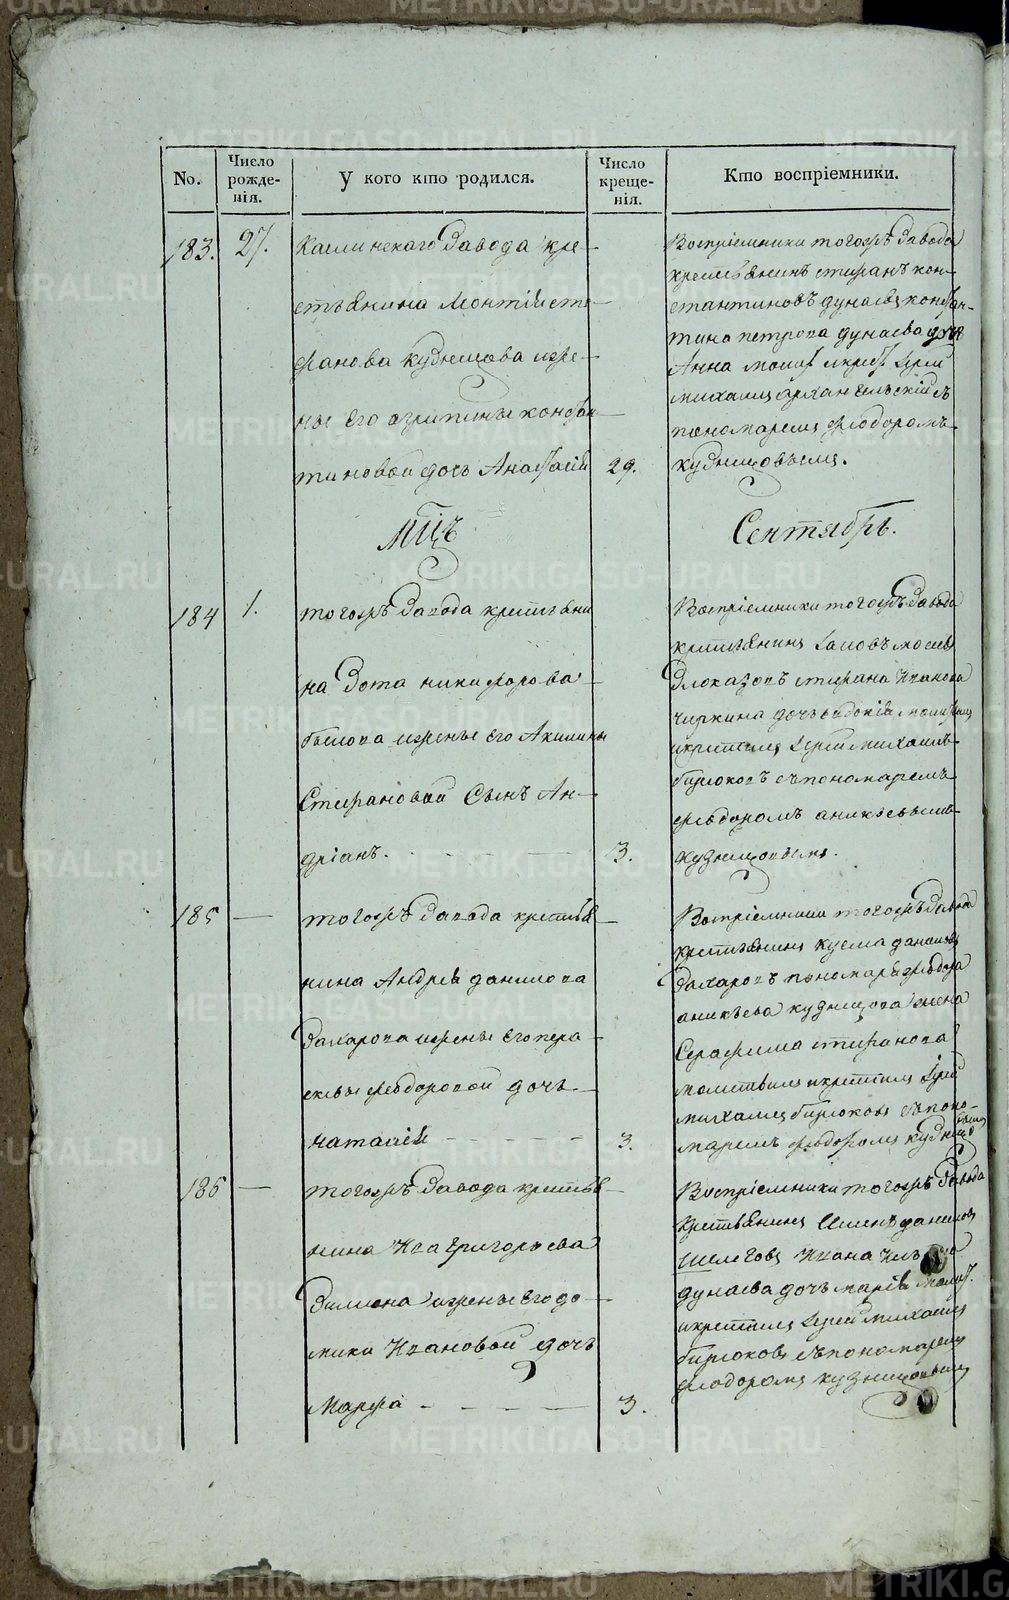 No.
Число рожде-нія.
У кого кто родился.
Число креще-нія.
Кто воспріемники.
183.
27.
Каслинскаго Завода кре-
стьянина Леонтія сте-
фанова кузнецова изже-
ны его агрипины констан-
тиновой дочь Анастасія
29.
Воспріемники тогожъ Завода
крестьянинъ стефанъ кон-
стантиновъ дунаевъ констан-
тина петрова дунаева дочь
Анна молит. икрест. Іерей
михаилъ архангельскій съ
пономаремъ феодоромъ
кузнецовымъ.
Мцъ
Сентябрь.
184
1.
тогожъ Завода крестьяни
на Зота никифорова
бы изжены его Акилины
Стефановой Сынъ Ан-
дріанъ.
3.
Воспріемники тогожъ Завода
крестьянинъ Іаковъ
Злоказовъ стефана Иванова
чиркина дочь евдокія молитвил
икрестилъ Іерей михаилъ
бирюковъ съпономаремъ
феодоромъ аникъевымъ
кузнецовымъ.
185
тогожъ Завода крестья
нина Андрея данилова
Захарова изжены его пера
скевы феодоровой дочь
наталія
3.
Воспріемники тогожъ Завода
крестьянинъ кузма даниловъ
Захаровъ пономаря феодора
аникъева кузнецова жена
Серафима стефанова
молитвилъ икрестилъ Іерей
михаилъ бирюковъ съпоно-
маремъ феодоромъ кузнецовымъ
186
тогожъ Завода крестья
нина Ивана григорьева
Зимина изжены его до
мики Ивановой дочь
Марфа
3.
Воспріемники тогожъ Завода
крестьянинъ даниловъ
Ивана
дунаева дочь марія молит.
икрестилъ Іерей михаилъ
бирюковъ съпономаремъ
феодоромъ кузнецовымъ
METRIKI.GASO-URAL.RU